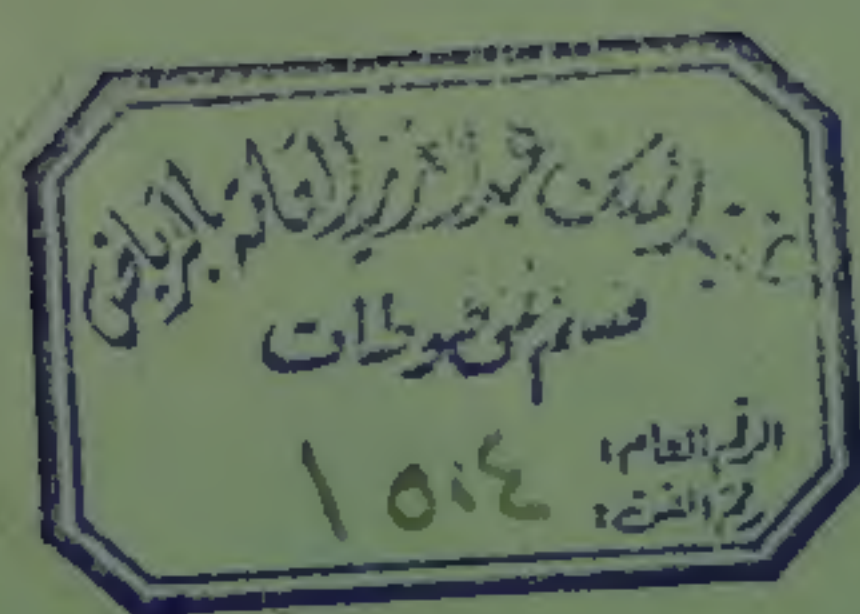 الملك عبد العزيز العامة بالرياض
قسم المخطوطات
الرقم العام:
رقم الفن:
١٥٠٤